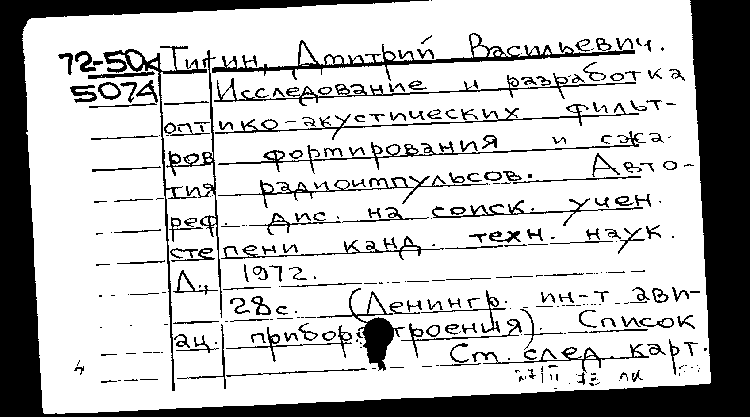 72-50к Тигин, Дмитрий Васильевич.
5074 Исследование и разработка
оптико-акустических фильт-
ров формирования и сжа-
тия радиоимпульсов. Авто-
реф. дис. на соиск. учен.
степени канд. техн. наук.
Л., 1972.
28с. (Ленингр. ин-т ави-
ац. приборостроения). Список
См. след. карт.